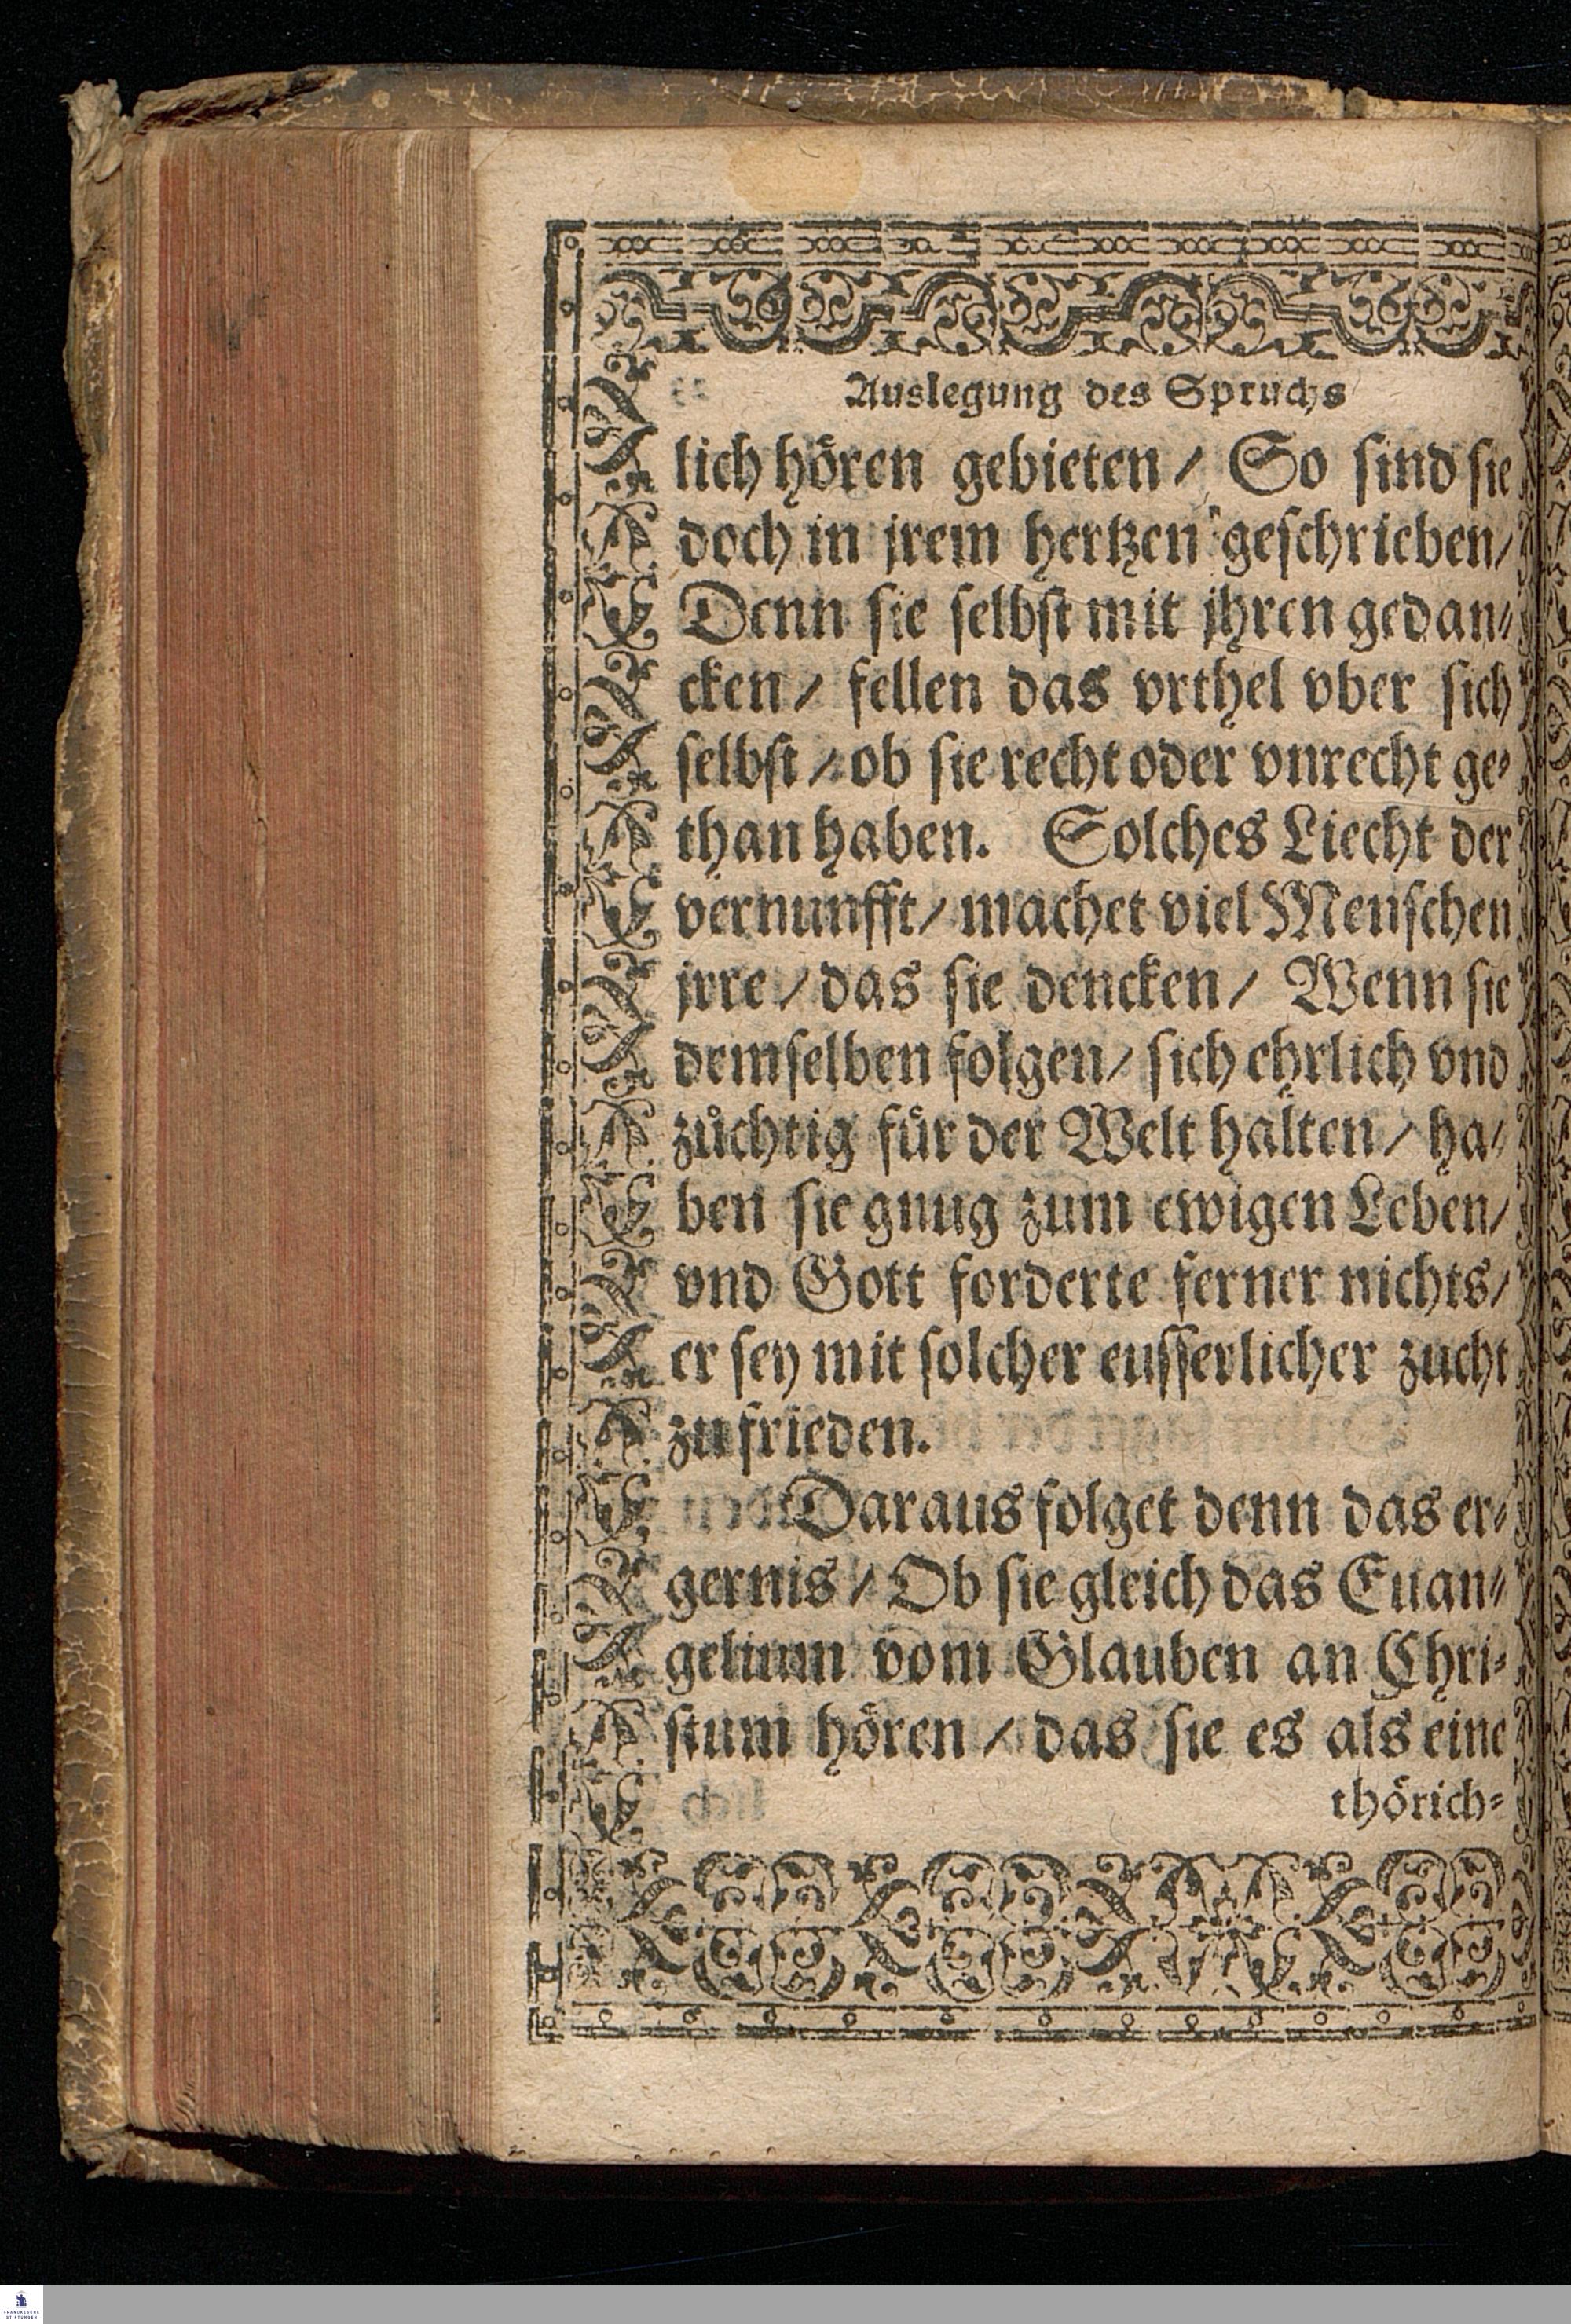 Auslegung des Spruchs
lich hören gebieten / So sind sie
doch in jrem hertzen geschrieben /
Denn sie selbst mit jhren gedan-
cken / fellen das vrthel vber sich
selbst / ob sie recht oder vnrecht ge-
than haben. Solches Liecht der
vernunfft / machet viel Menschen
jrre / das sie dencken / Wenn sie
demselben folgen / sich ehrlich vnd
zůchtig für der Welt halten / ha-
ben sie gnug zum ewigen Leben /
vnd Gott forderte ferner nichts /
er sey mit solcher eusserlicher zucht
zu frieden.
Daraus folget denn das er-
gernis / Ob sie gleich das Euan-
gelium vom Glauben an Chri-
stum hören / das sie es als eine
thörich-
FRANCKESCHE
STIFTUNGEN